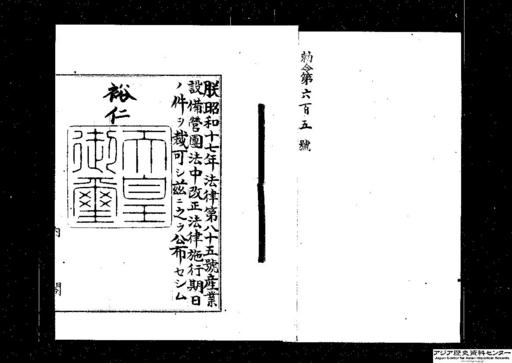 勅令第六百五號
朕昭和十七年法律第八十五號産業
設備營團法中改正法律施行期日
ノ件ヲ裁可シ茲ニ之ヲ公布セシム
裕仁
天皇御璽
内閣
アジア歴史資料センター
Japan Center for Asian Historical Records